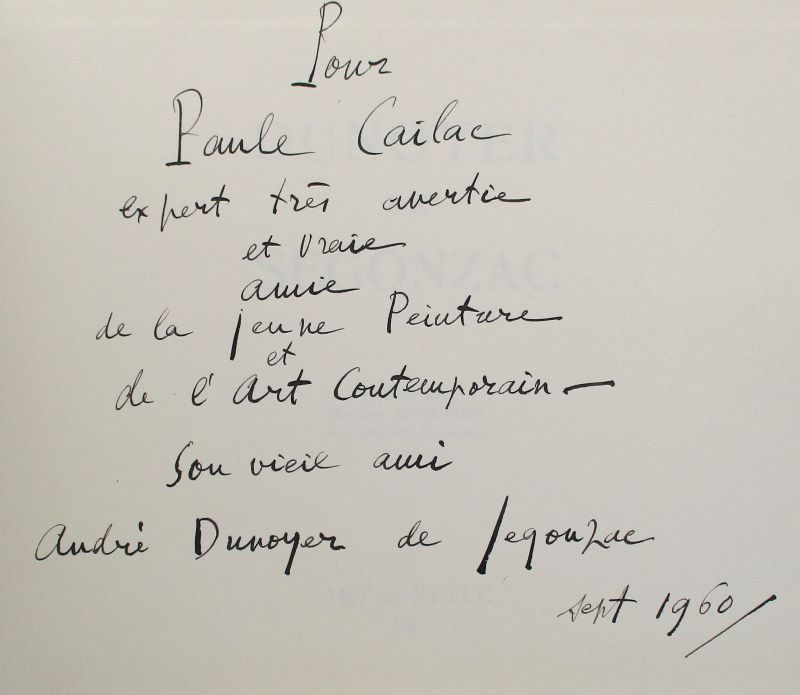 Pour
Paule Cailac
expert très avertie
et vraie
amie
de la jeune Peinture
et
de l'Art Contemporain —
Son vieil ami
André Dunoyer de Segonzac
sept 1960
DUNOYER
SEGONZAC
ART et STYLE